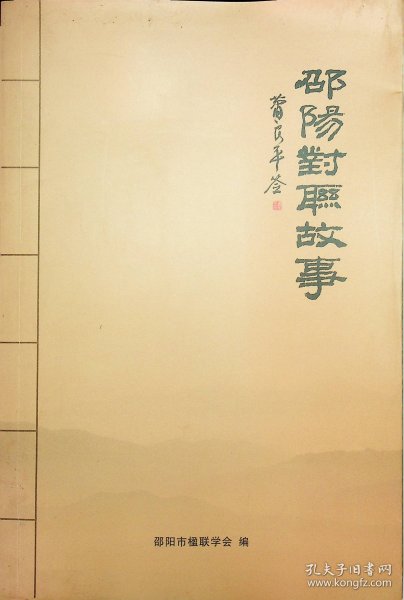 邵陽對聯故事
邵阳市楹联学会 编
孔夫子旧书网
www.kongfz.com